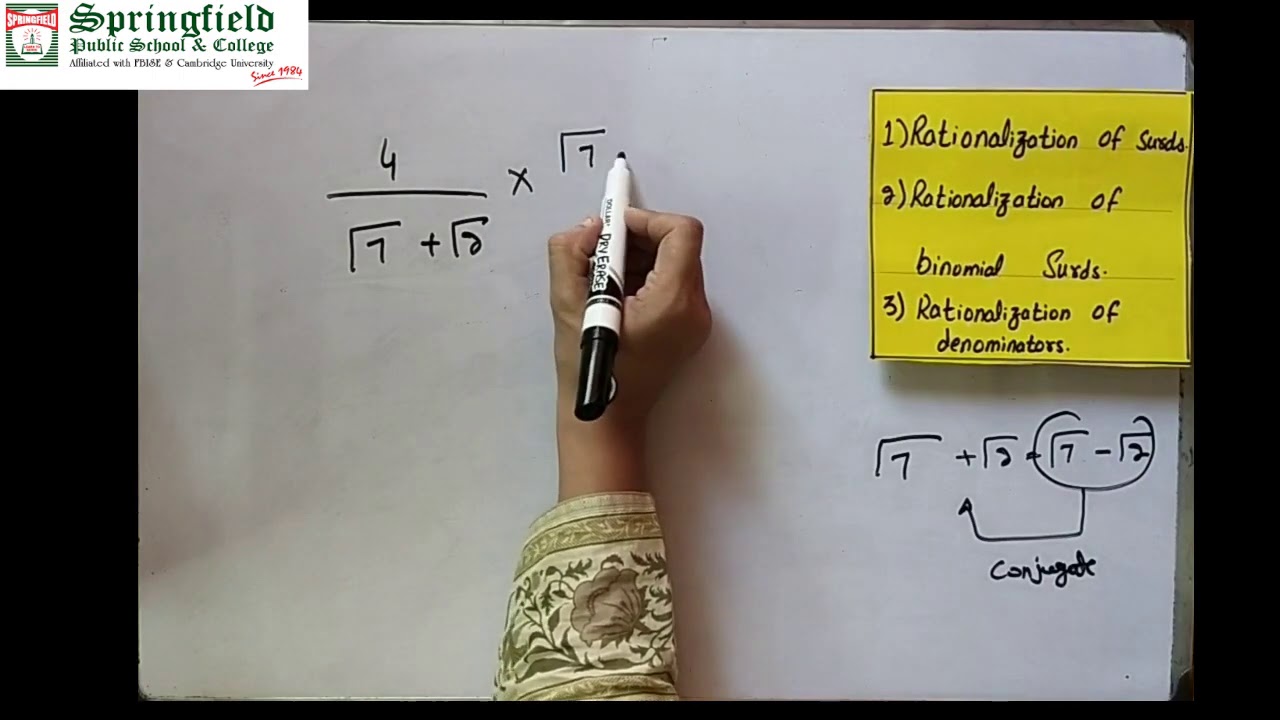 SPRINGFIELD
Springfield
Public School & College
Affiliated with FBISE & Cambridge University
Since 1984
4
√7 + √2
× √7
1) Rationalization of Surds.
2) Rationalization of
binomial Surds.
3) Rationalization of
denominators.
√7 + √2 = √7 - √2
Conjugate
DOLLAR
DRY ERASE